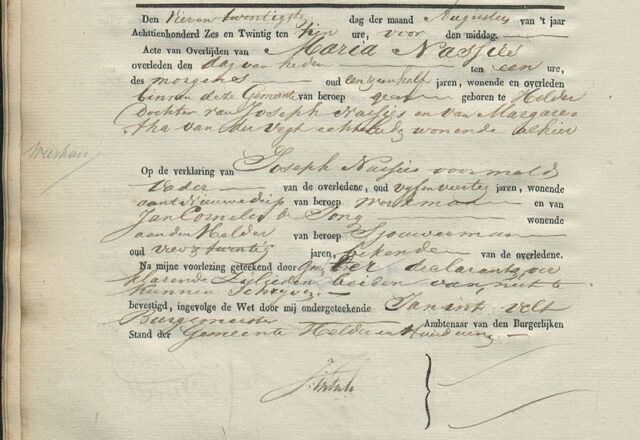 Den Vier en twintigste dag der maand Augustus van 't jaar
Achttienhonderd Zes en Twintig ten tien ure, voor den middag.
Acte van Overlijden van Maria Nassies
overleden den dag van heden ten een ure,
des morgens oud een jaren, wonende en overleden
binnen deze Gemeente van beroep geen geboren te Helder
Dochter van Joseph Nassies en van Margare-
tha van der Vegt echtelieden wonende alhier
Op de verklaring van Joseph Nassies voormeld
Vader van de overledene, oud vyf en veertig jaren, wonende
aan 't Nieuwediep van beroep werkman en van
Jan Cornelis de Jong wonende
aan den Helder van beroep Sjouwerman
oud vier & twintig jaren, bekende van de overledene.
Na mijne voorlezing geteekend door declaranten ver
klarende beiden van niet te
kunnen Schryven
bevestigd, ingevolge de Wet door mij ondergeteekende in 't Velt
Burgemeester Ambtenaar van den Burgerlijken
Stand der Gemeente Helder en Huisduinen